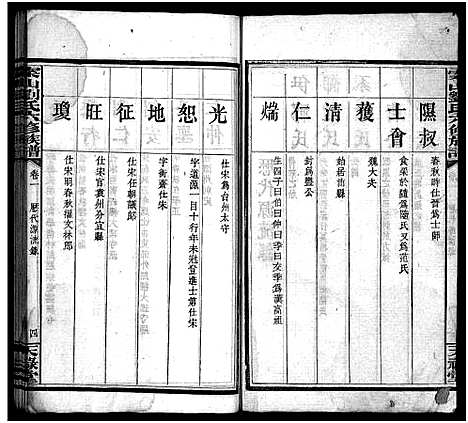 隰叔
春秋時仕晉爲士師
士會
食采於隨爲隨氏又爲范氏
獲
魏大夫
清
始居沛縣
仁
封爲豐公
煓
生四子長伯曰仲曰季曰交季爲漢高祖
光
仕宋爲台州太守
恕
字道源一目十行年未冠登進士第仕宋
地
字衡齋仕宋
征
仕宋任朝議郎
旺
仕宋官袁州分宜縣
瓊
仕宋明春秋擢文林郎
劉氏六修族譜
卷一
歷代源流錄
四
天祿堂